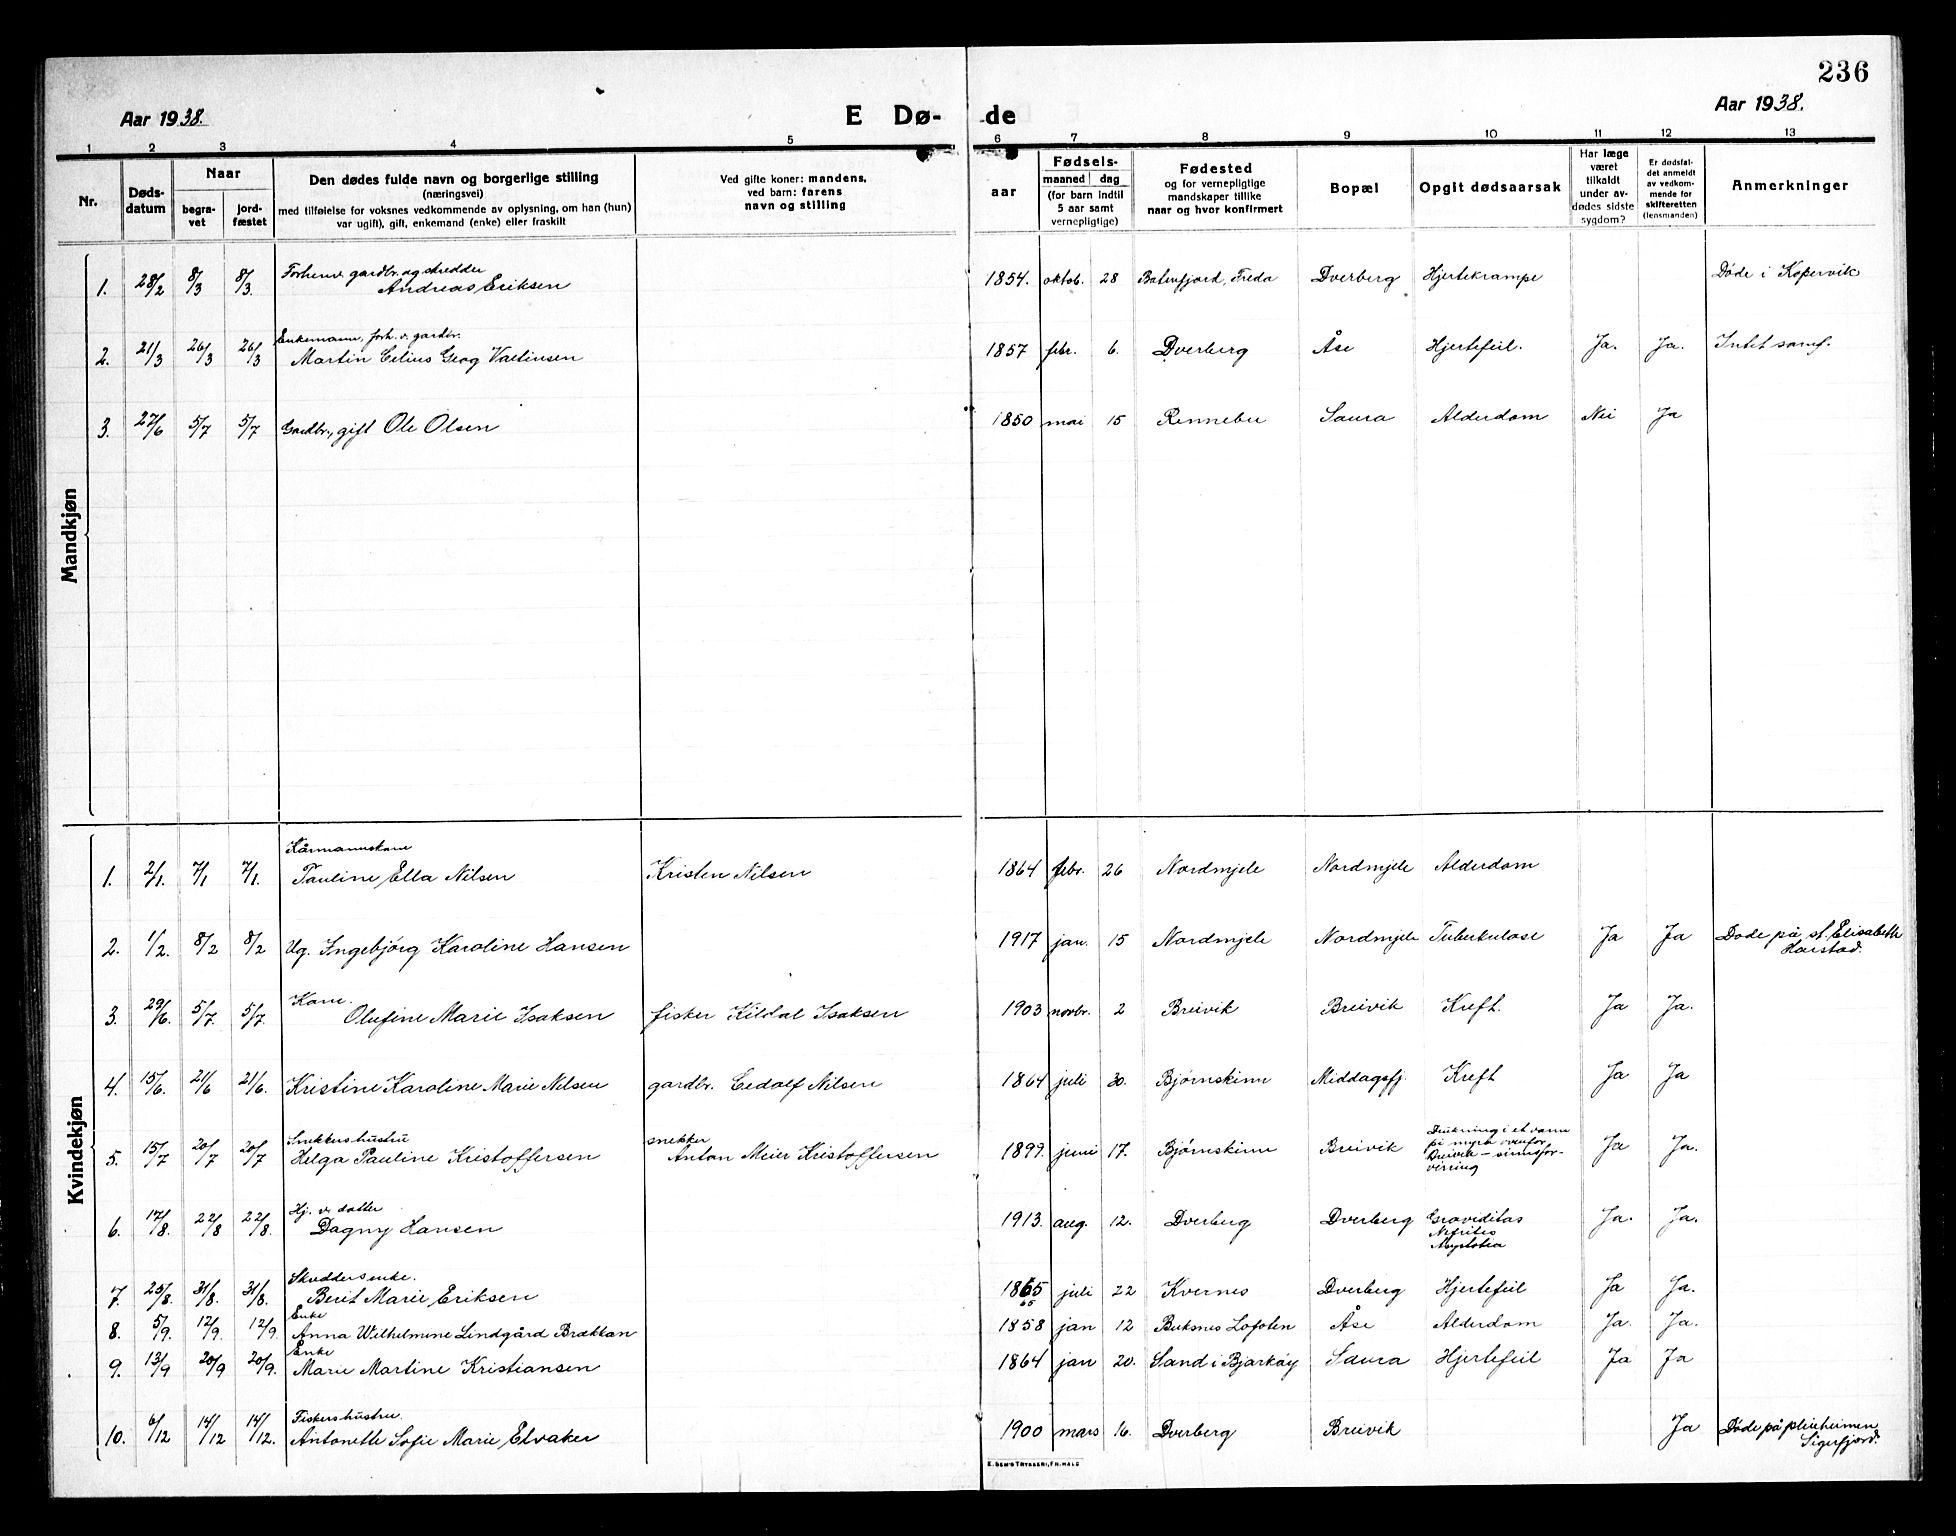 236
Aar 1938.
E Dø-
de
Aar 1938.
1 2 3 4 5 6 7 8 9 10 11 12 13
Nr.
Døds-
datum
Naar
begra-
vet
jord-
fæstet
Den dødes fulde navn og borgerlige stilling
(næringsvei)
med tilføielse for voksnes vedkommende av oplysning, om han (hun)
var ugift), gift, enkemand (enke) eller fraskilt
Ved gifte koner: mandens,
ved barn: farens
navn og stilling
Fødsels-
aar
maaned dag
(for barn indtil
5 aar samt
vernepligtige)
Fødested
og for vernepligtige
mandskaper tillike
naar og hvor konfirmert
Bopæl
Opgit dødsaarsak
Har læge
været
tilkaldt
under av-
dødes sidste
sygdom?
Er dødsfal-
det anmeldt
av vedkom-
mende for
skifteretten
(lensmanden)
Anmerkninger
Mandkjøn
Forhenv. gardbr. og skredder
1. 28/2 8/3 8/3. Andreas Eriksen 1854. oktob. 28 Batnfjord, Freda Dverberg Hjertekrampe Døde i Kopervik
Enkemann, forh. v. gardbr.
2. 21/3 26/3 26/3 Martin Celius Georg Valtinsen 1857 febr. 6. Dverberg Åse Hjertefeil. Ja. Ja. Intet samf.
3. 27/6 5/7 5/7 Gardbr., gift Ole Olsen 1850 mai 15 Rennebu Saura Alderdom Nei Ja
Kvindekjøn
Kårmannskone
1. 2/1. 7/1 7/1. Pauline Ella Nilsen Kristen Nilsen 1864 febr. 26 Nordmjele Nordmjele Alderdom
2. 1/2. 8/2 8/2 Ug. Ingebjørg Karoline Hansen 1917 jan. 15 Nordmjele Nordmjele Tuberkulose Ja Ja Døde på st. Elisabeth
Harstad.
Kone.
3. 29/6. 5/7. 5/7. Olufine Marie Isaksen fisker Kildal Isaksen 1903 novbr. 2 Breivik Breivik Kreft. Ja Ja.
4. 15/6. 21/6 21/6. Kristine Karoline Marie Nilsen gardbr. Cedolf Nilsen 1864 juli 30. Bjørnskinn Middagsfj. Kreft Ja Ja
Snekkershustru
snekker
Drukning i et vann
5. 15/7 20/7 20/7 Helga Pauline Kristoffersen Anton Meier Kristoffersen 1899 juni 17. Bjørnskinn Breivik på myra ovenfor Ja Ja.
Breivik – sinnsfor-
virring
Hj. v. datter
6. 17/8. 22/8 22/8. Dagny Hansen 1913. aug. 12. Dverberg Dverberg Graviditas Ja. Ja.
Nefritis
Skredders enke.
7. 25/8. 31/8. 31/8. Berit Marie Eriksen 1865 juli 22 Kvernes Dverberg Hjertefeil Ja Ja.
65
Enke
8. 5/9. 12/9. 12/9. Anna Wilhelmine Lindgård Brækkan 1858 jan 12 Buksnes Lofoten Åse Alderdom Ja. Ja.
Enke
9. 13/9 20/9 20/9. Marie Martine Kristiansen 1864 jan 20. Sand i Bjarkøy Saura Hjertefeil Ja Ja
Fiskershustru.
10. 6/12 14/12 14/12. Antoneth Sofie Marie Elvaker 1900 mars 16. Dverberg Breivik Ja Døde på pleieheimen
Sigerfjord.
E. SEM'S TRYKKERI, FR.HALD